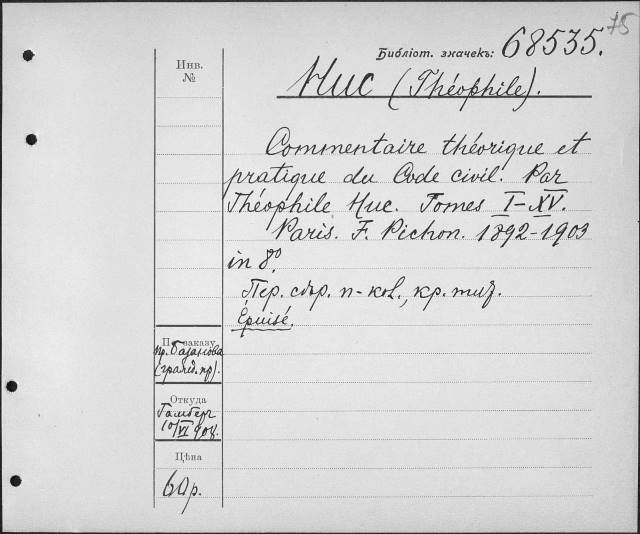 75
Библіот. значекъ: 68535.
Инв.
№
Huc (Théophile).
Commentaire théorique et
pratique du Code civil. Par
Théophile Huc. Tomes I-XV.
Paris. F. Pichon. 1892-1903
in 8º
Пер. сѣр. п-кол., кр. тит.
Épuisé.
По заказу
пр. Базанова
(гражд. пр).
Откуда
Гамберг
10/VI 904.
Цѣна
60 р.